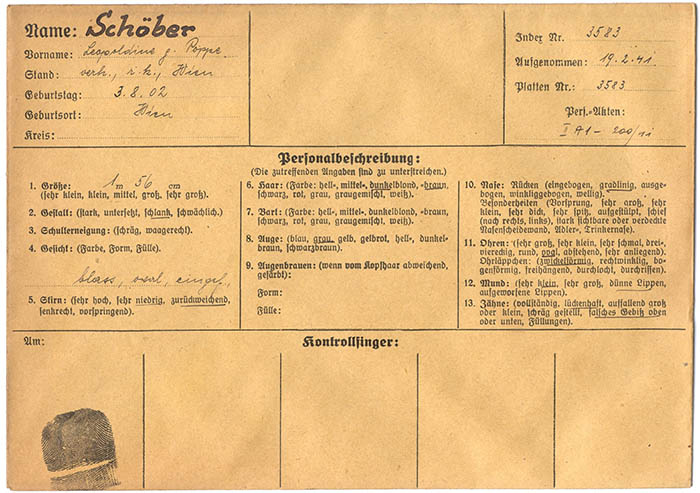 Name: Schöber
Vorname: Leopoldine g. Poppe
Stand: verh., r.k., Wien
Geburtstag: 3.8.02
Geburtsort: Wien
Kreis:
Index Nr. 3583
Aufgenommen: 19.2.41.
Platten Nr.: 3583
Pers.-Akten:
I A1 - 200/11
Personalbeschreibung:
(Die zutreffenden Angaben sind zu unterstreichen.)
1. Größe: 1 m 56 cm
(sehr klein, klein, mittel, groß, sehr groß).
2. Gestalt: (stark, untersetzt, schlank, schwächlich.)
3. Schulterneigung: (schräg, waagerecht).
4. Gesicht: (Farbe, Form, Fülle).
blass, oval, eingef.
5. Stirn: (sehr hoch, sehr niedrig, zurückweichend,
senkrecht, vorspringend).
6. Haar: (Farbe: hell-, mittel-, dunkelblond, -braun,
schwarz, rot, grau, graugemischt, weiß).
7. Bart: (Farbe: hell-, mittel-, dunkelblond, -braun,
schwarz, rot, grau, graugemischt, weiß).
8. Auge: (blau, grau, gelb, gelbrot, hell-, dunkel-
braun, schwarzbraun).
9. Augenbrauen: (wenn vom Kopfhaar abweichend,
gefärbt):
Form:
Fülle:
10. Nase: Rücken (eingebogen, gradlinig, ausge-
bogen, winkliggebogen, wellig).
Besonderheiten (Vorsprung, sehr groß, sehr
klein, sehr dick, sehr spitz, aufgestülpt, schief
(nach rechts, links), stark sichtbare oder verdeckte
Nasenscheidewand, Adler-, Trinkernase).
11. Ohren: (sehr groß, sehr klein, sehr schmal, drei-,
viereckig, rund, oval, abstehend, sehr anliegend).
Ohrläppchen: (zwickelförmig, rechtwinklig, bo-
genförmig, freihängend, durchlocht, durchrissen).
12. Mund: (sehr klein, sehr groß, dünne Lippen,
aufgeworfene Lippen).
13. Zähne: (vollständig, lückenhaft, auffallend groß
oder klein, schräg gestellt, falsches Gebiß oben
oder unten, Füllungen).
Am:
Kontrollfinger: